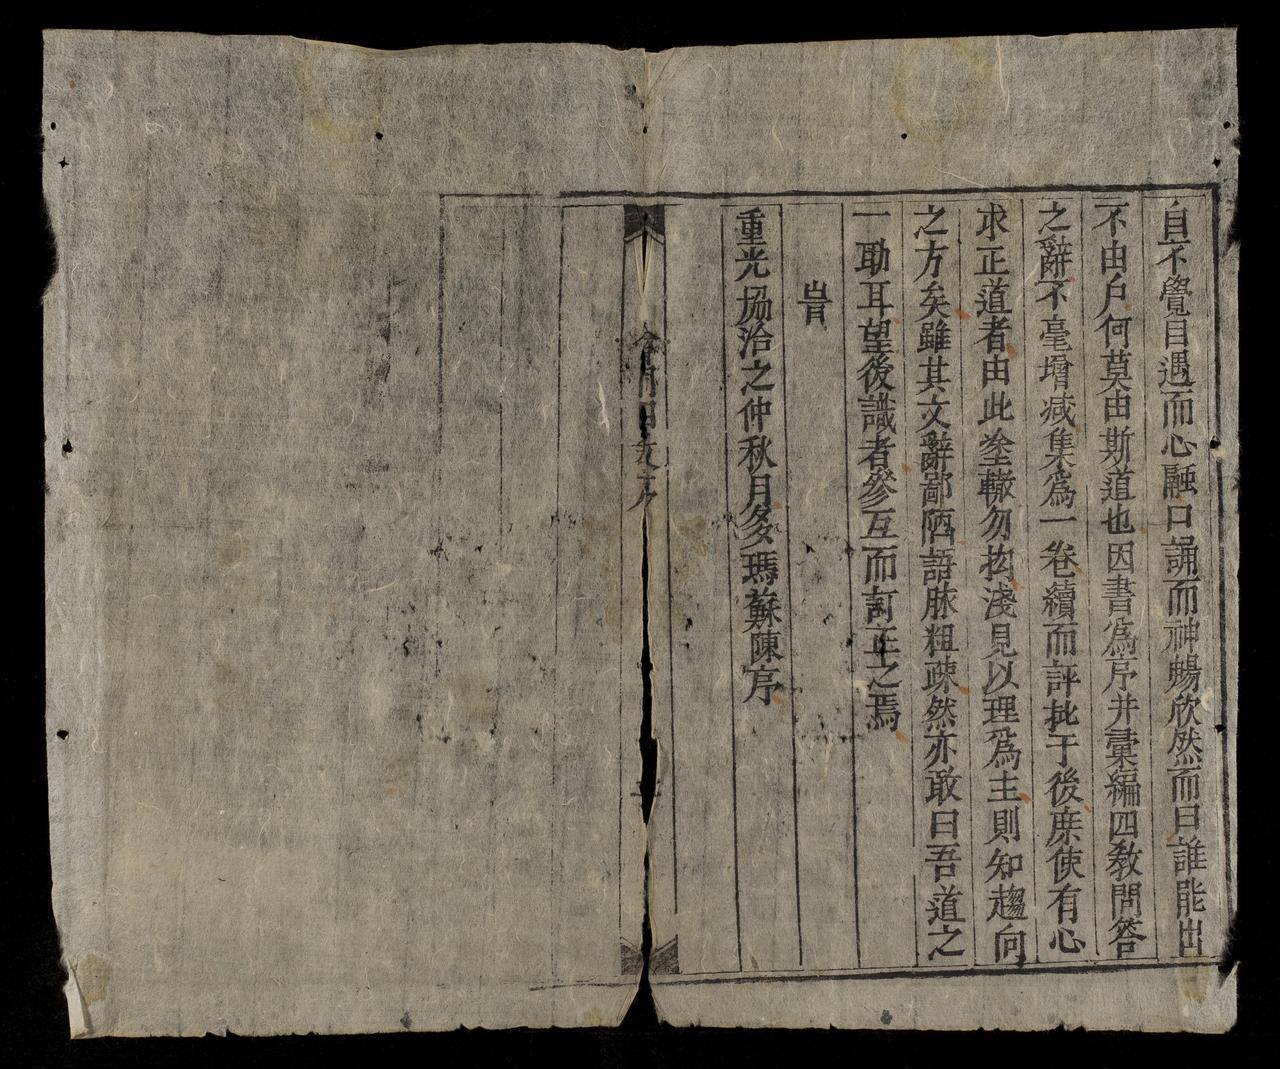 自不覺目遇而心融口誦而神暢欣然而曰誰能出
不由戶何莫由斯道也因書為序并彙編四教問答
之辭不毫增减集為一卷續而評批于後庶使有心
求正道者由此塗轍勿拘淺見以理為主則知趨向
之方矣雖其文辭鄙陋語脉粗疎然亦敢曰吾道之
一助耳望後識者參互而訂正之焉
旹
重光協洽之仲秋月多瑪蘇陳序